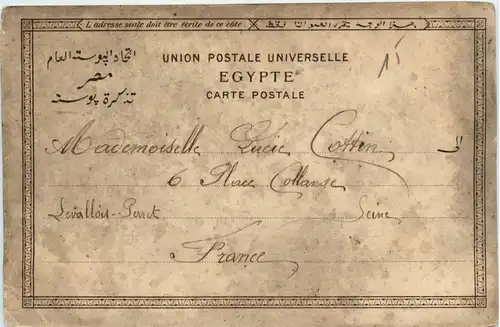 L'adresse seule doit être écrite de ce côté
UNION POSTALE UNIVERSELLE
اتحاد البوسته العام
EGYPTE
مصر
CARTE POSTALE
تذكرة بوسته
15
Mademoiselle Lucie Cottin
6 Place Collange
Levallois-Perret Seine
France